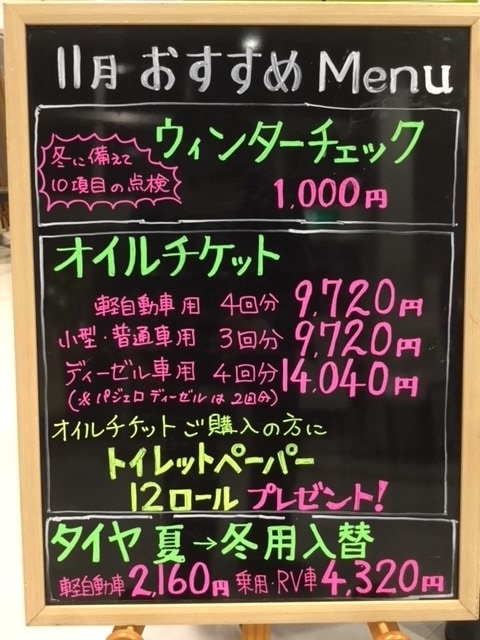 11月 おすすめ Menu
冬に備えて
10項目の点検
ウィンターチェック
1,000円
オイルチケット
軽自動車用 4回分 9,720円
小型・普通車用 3回分 9,720円
ディーゼル車用 4回分 14,040円
(※パジェロディーゼルは2回分)
オイルチケットご購入の方に
トイレットペーパー
12ロール プレゼント!
タイヤ 夏→冬用入替
軽自動車 2,160円 乗用・RV車 4,320円